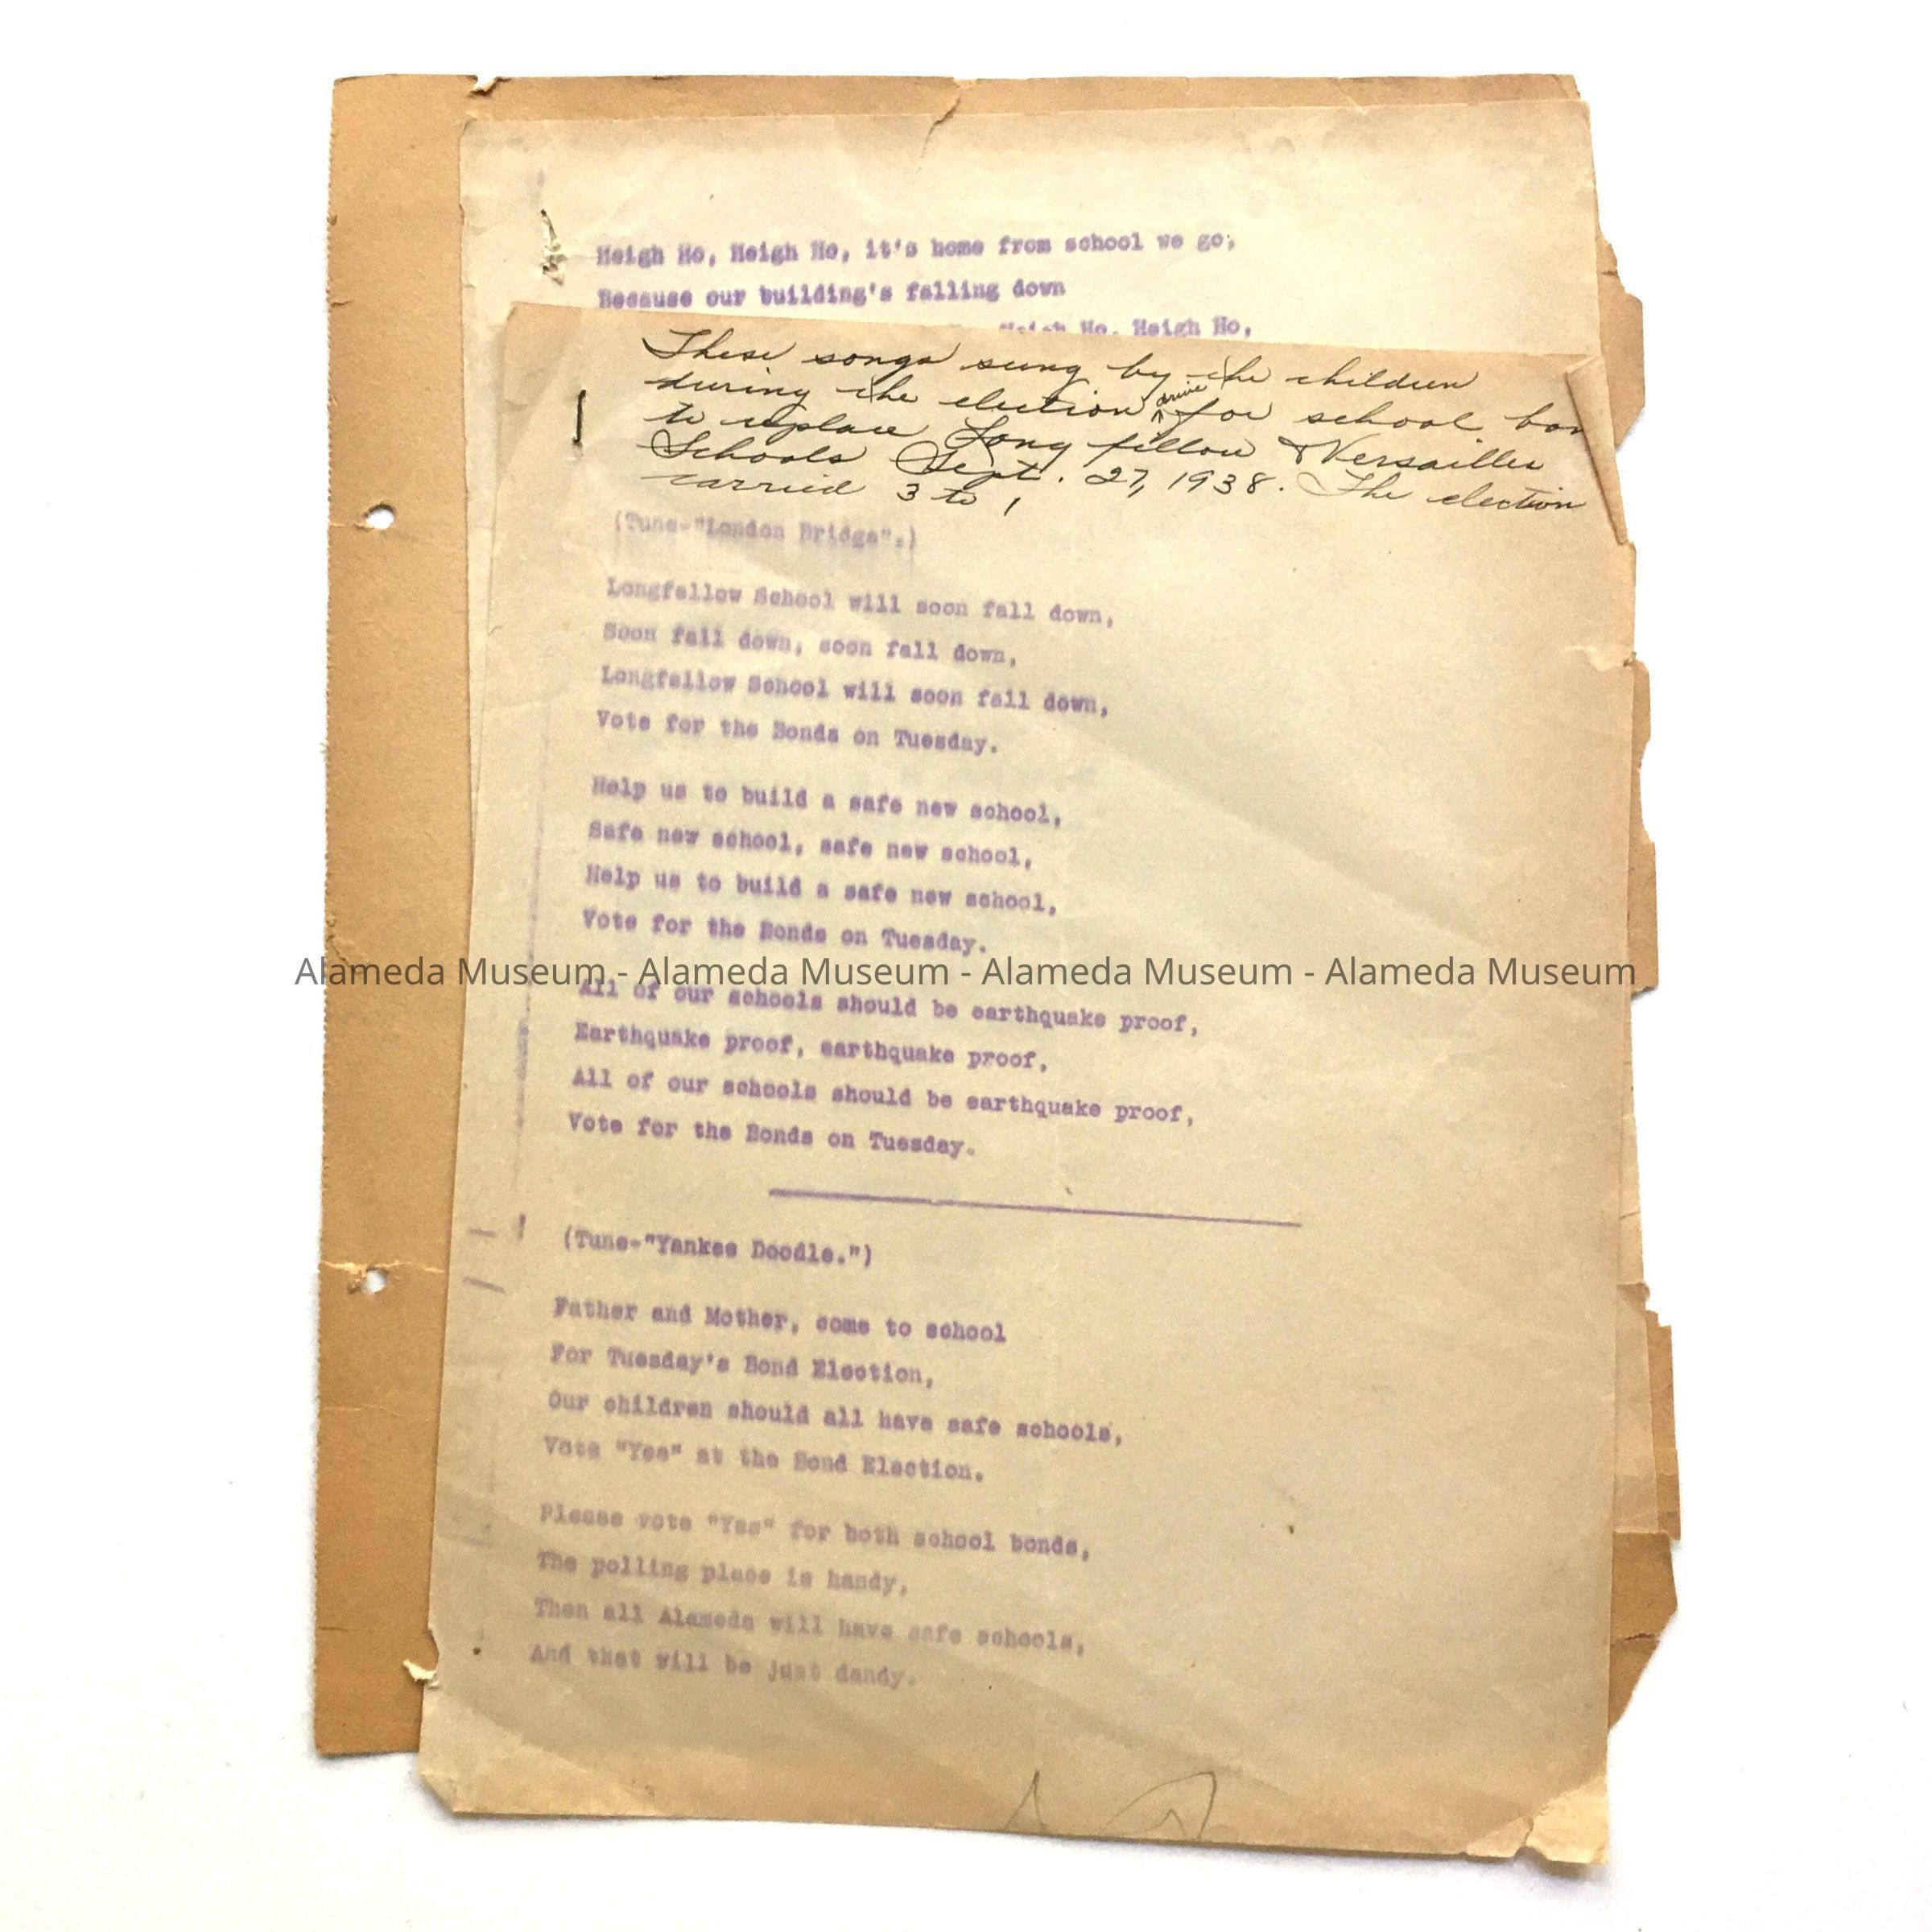 Heigh Ho, Heigh Ho, it's home from school we go;
Because our building's falling down
Heigh Ho, Heigh Ho,
These songs sung by the children
during the election drive for school bon
to replace Longfellow & Versailles
Schools Sept. 27, 1938. The election
carried 3 to 1
(Tune-"London Bridge".)
Longfellow School will soon fall down,
Soon fall down, soon fall down,
Longfellow School will soon fall down,
Vote for the Bonds on Tuesday.
Help us to build a safe new school,
Safe new school, safe new school,
Help us to build a safe new school,
Vote for the Bonds on Tuesday.
Alameda Museum - Alameda Museum - Alameda Museum - Alameda Museum
All of our schools should be earthquake proof,
Earthquake proof, earthquake proof,
All of our schools should be earthquake proof,
Vote for the Bonds on Tuesday.
(Tune-"Yankee Doodle.")
Father and Mother, come to school
For Tuesday's Bond Election,
Our children should all have safe schools,
Vote "Yes" at the Bond Election.
Please vote "Yes" for both school bonds,
The polling place is handy,
Then all Alameda will have safe schools,
And that will be just dandy.